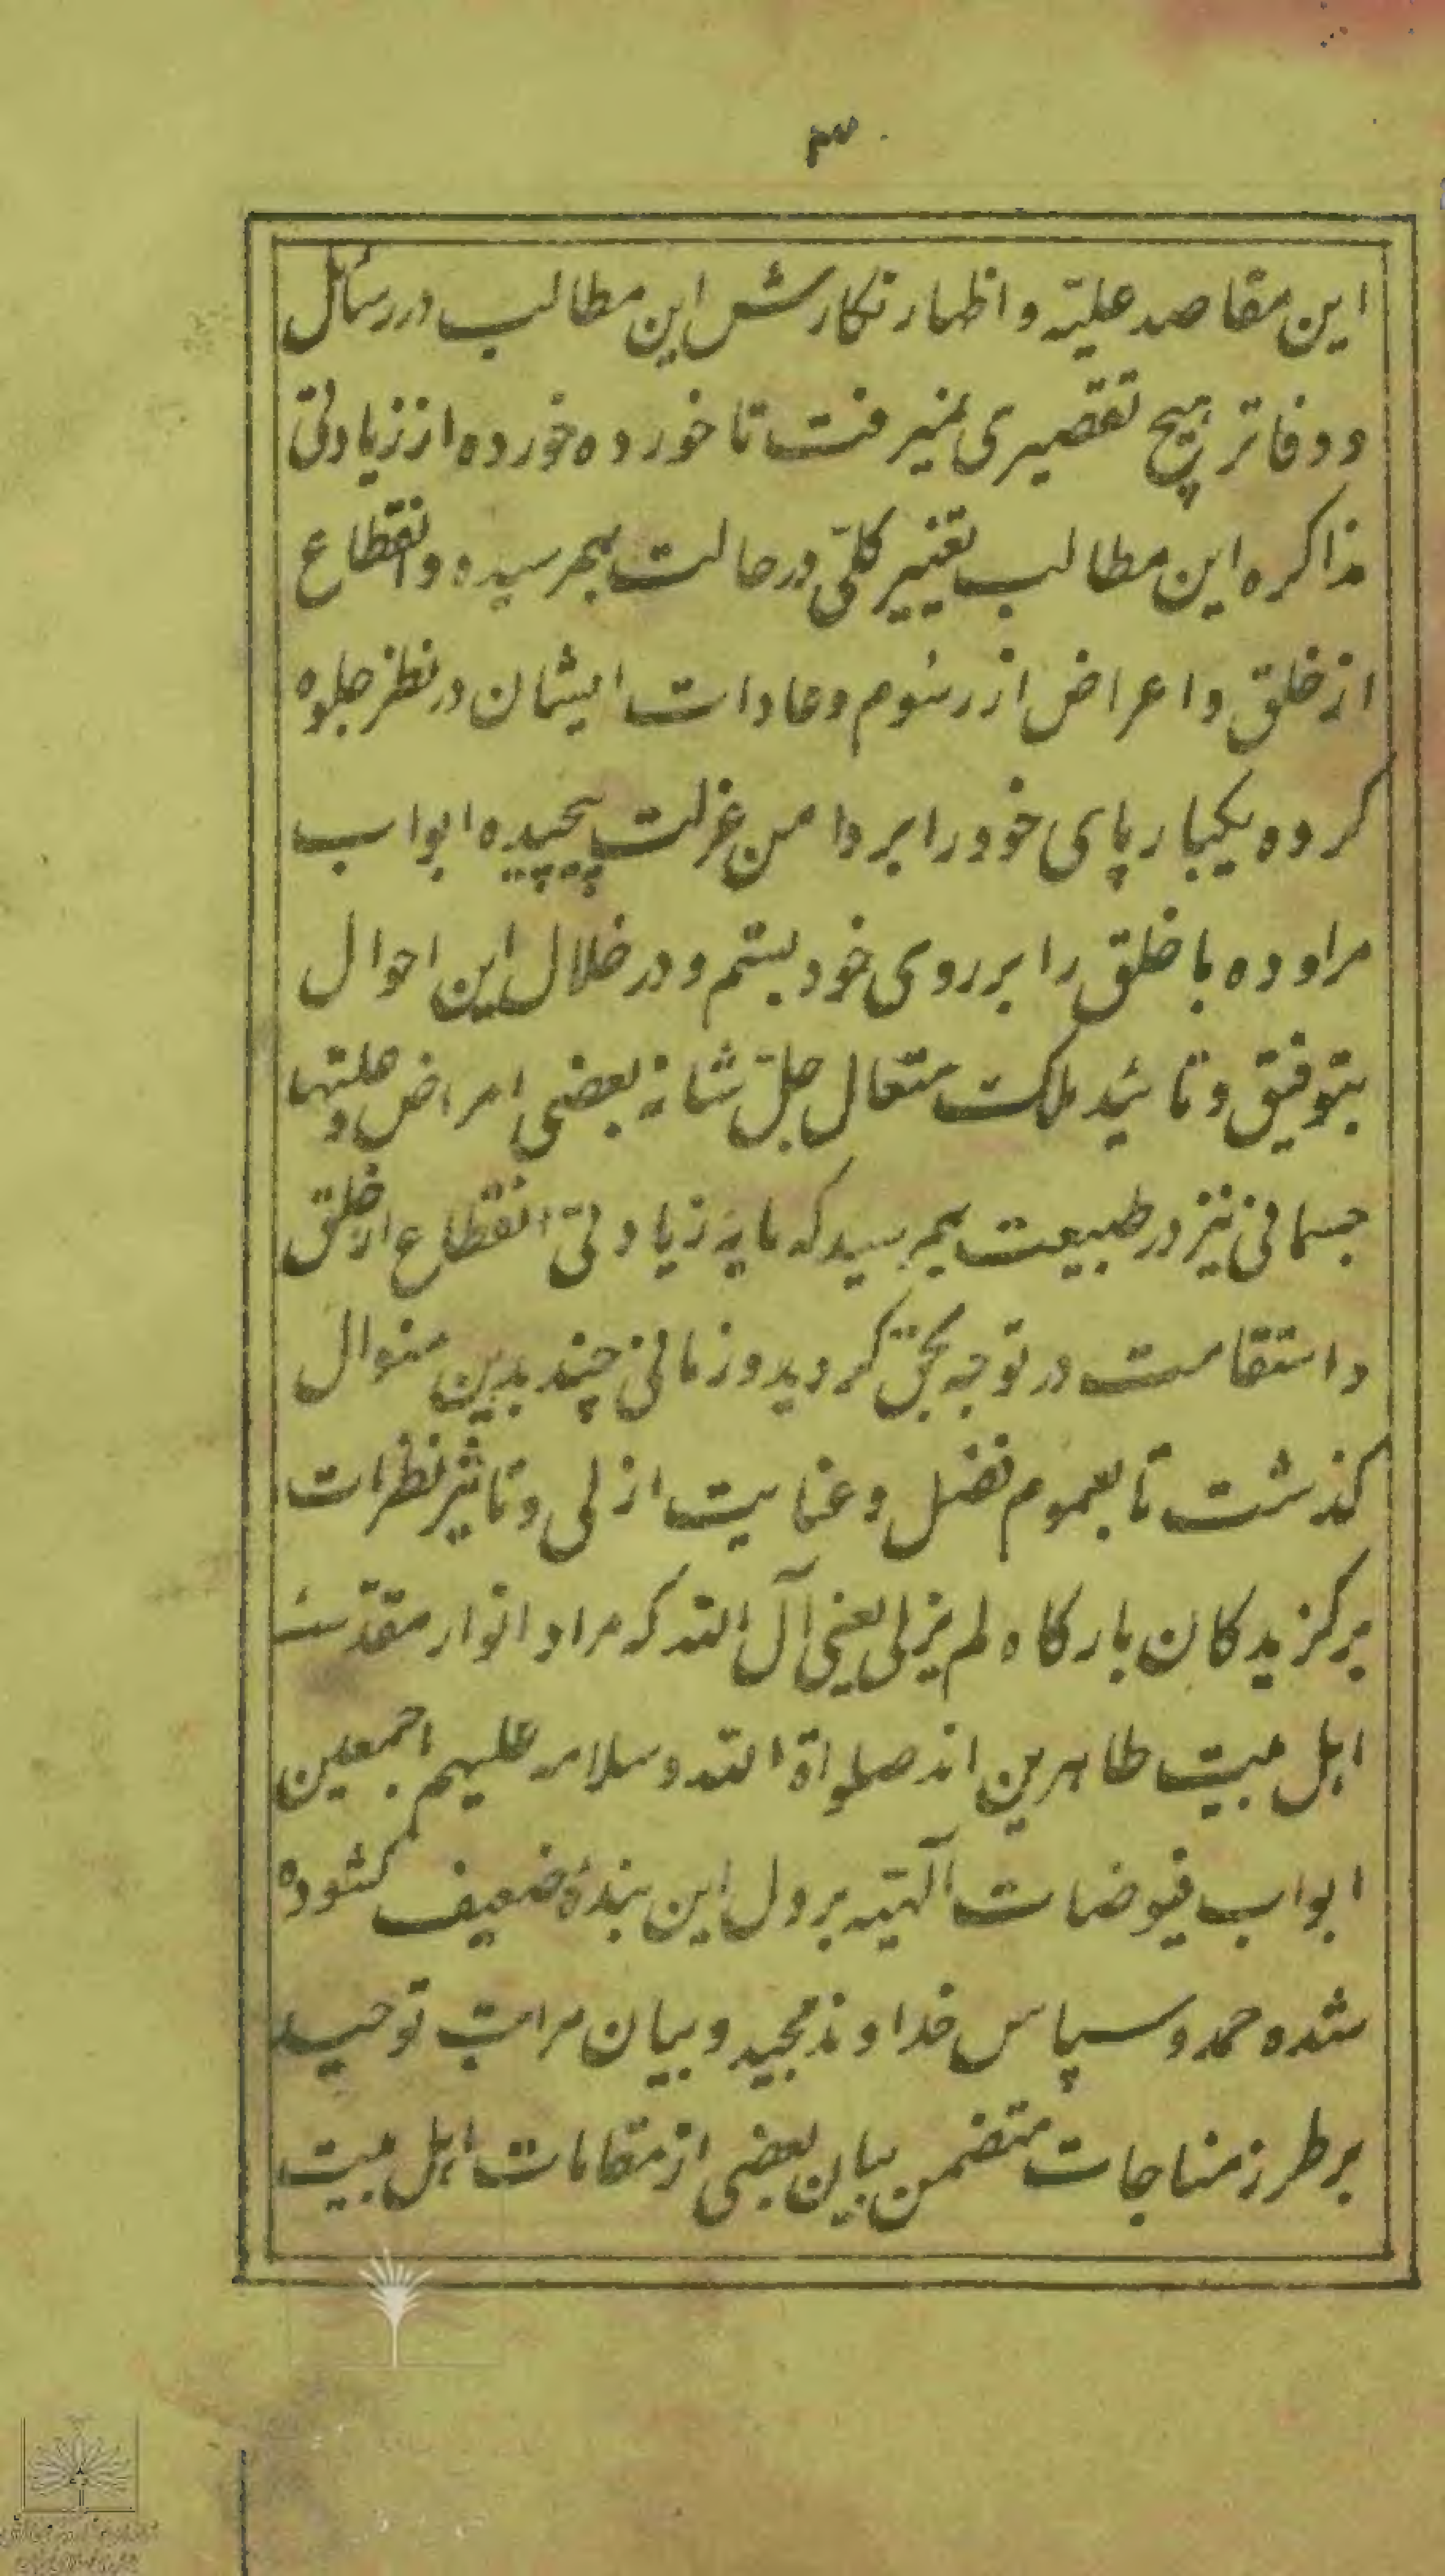 ۳
این مقاصد علیّه و اظهار نکارش این مطالب در رسائل
و دفاتر هیچ تقصیری نمیرفت تا خورده خورده از زیادتی
مذاکره این مطالب تغییر کلّی در حالت بهمرسیده و انقطاع
از خلق و اعراض از رسوم و عادات ایشان در نظر جلوه
کرده یکبار پای خود را بر دامن عزلت پیچیده ابواب
مراوده با خلق را بر روی خود بستم و در خلال این احوال
بتوفیق و تائید ملک متعال جلّ شانه بعضی امراض و علتها
جسمانی نیز در طبیعت بهمرسید که مایهٔ زیادتی انقطاع از خلق
و استقامت در توجه بحق کردید و زمانی چند بدین منوال
کذشت تا بعموم فضل و عنایت ازلی و تاثیر نظرات
برکزیدکان بارکاه لم یزلی یعنی آل الله که مراد انوار مقدّسهٔ
اهل بیت طاهرین اند صلواة الله و سلامه علیهم اجمعین
ابواب فیوضات آلهیّه بر دل این بندهٔ ضعیف کشوده
شده حمد و سپاس خداوند مجید و بیان مراتب توحید
بر طرز مناجات متضمن بیان بعضی از مقامات اهل بیت